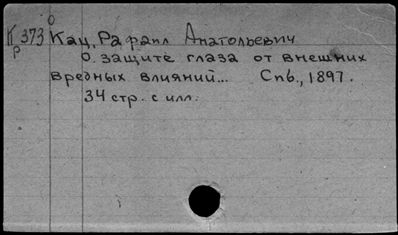 К 373 Кац, Рафаил Анатольевич
р
О защите глаза от внешних
вредных влияний... Спб., 1897.
34 стр. с илл.